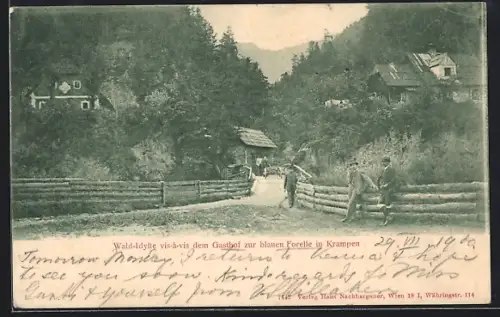 Wald-Idylle vis-à-vis dem Gasthof zur blauen Forelle in Krampen
29. VII. 1900
Tomorrow Monday, I return to Vienna I hope
to see you soon. Kindregards to Miss
and yourself from
Verlag Hans Nachbargauer, Wien 18 I, Währingstr. 114